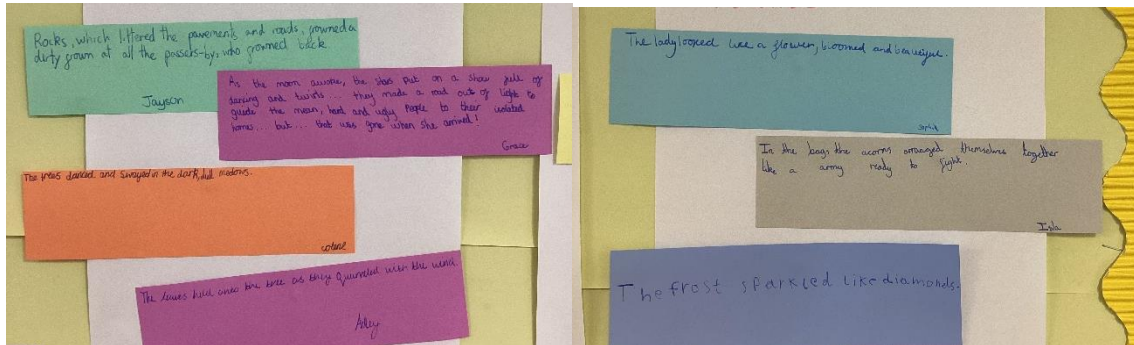 Rocks, which littered the pavements and roads, frowned a
dirty frown at all the passers-by, who frowned back
Jayson
As the moon awoke, the stars put on a show full of
dancing and twists... they made a road out of light to
guide the mean, hard and ugly people to their isolated
homes... but... that was gone when she arrived!
Grace
The trees danced and swayed in the dark, dull medows.
The leaves held onto the tree as they quarreled with the wind.
The lady looked like a flower, bloomed and beautiful.
Sophia
In the bags the acorns arranged themselves together
like a army ready to fight.
Isla
The frost sparkled like diamonds.